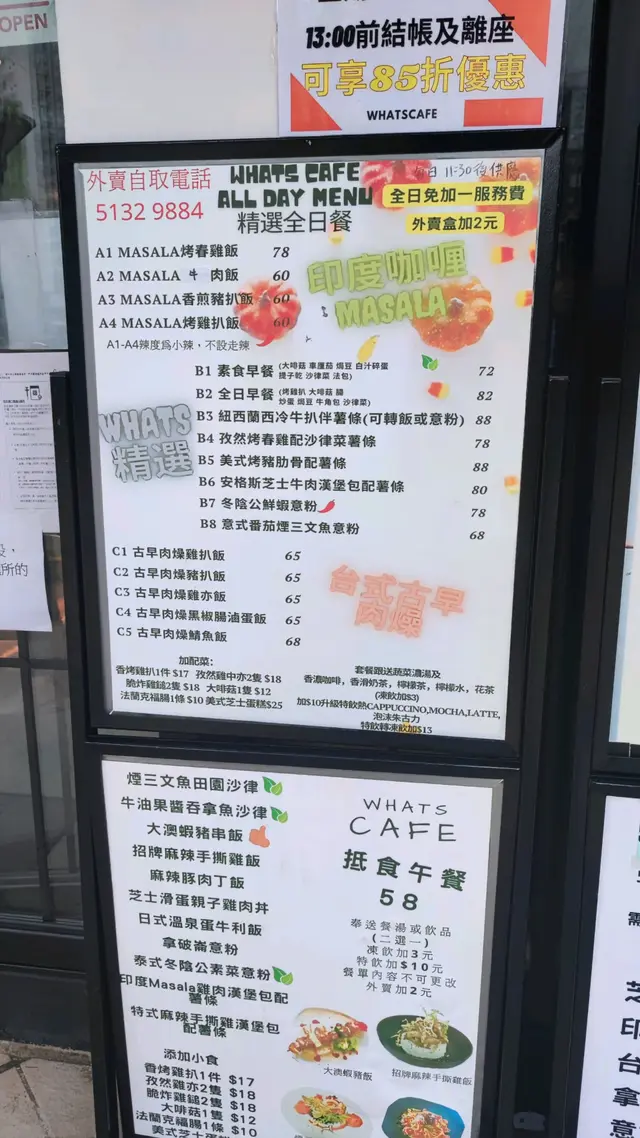 OPEN
13:00前結帳及離座
可享85折優惠
WHATSCAFE
外賣自取電話
5132 9884
WHATS CAFE
ALL DAY MENU
精選全日餐
11:30後供應
全日免加一服務費
外賣盒加2元
A1 MASALA烤春雞飯 78
A2 MASALA 牛 肉飯 60
A3 MASALA香煎豬扒飯 60
A4 MASALA烤雞扒飯 60
A1-A4辣度爲小辣，不設走辣
印度咖喱
MASALA
WHATS
精選
B1 素食早餐 (大啡菇 車厘茄 焗豆 白汁碎蛋
提子乾 沙律菜 法包) 72
B2 全日早餐 (烤雞扒 大啡菇 腸
炒蛋 焗豆 牛角包 沙律菜) 82
B3 紐西蘭西冷牛扒伴薯條(可轉飯或意粉) 88
B4 孜然烤春雞配沙律菜薯條 78
B5 美式烤豬肋骨配薯條 88
B6 安格斯芝士牛肉漢堡包配薯條 80
B7 冬陰公鮮蝦意粉 78
B8 意式番茄煙三文魚意粉 68
C1 古早肉燥雞扒飯 65
C2 古早肉燥豬扒飯 65
C3 古早肉燥雞亦飯 65
C4 古早肉燥黑椒腸滷蛋飯 65
C5 古早肉燥鯖魚飯 68
台式古早
肉燥
加配菜：
香烤雞扒1件 $17 孜然雞中亦2隻 $18
脆炸雞鎚2隻 $18 大啡菇1隻 $12
法蘭克福腸1條 $10 美式芝士蛋糕$25
套餐跟送蔬菜濃湯及
香濃咖啡，香滑奶茶，檸檬茶，檸檬水，花茶
(凍飲加$3)
加$10升級特飲熱CAPPUCCINO,MOCHA,LATTE,
泡沫朱古力
特飲轉凍飲加$13
煙三文魚田園沙律
牛油果醬吞拿魚沙律
大澳蝦豬串飯
招牌麻辣手撕雞飯
麻辣豚肉丁飯
芝士滑蛋親子雞肉丼
日式溫泉蛋牛利飯
拿破崙意粉
泰式冬陰公素菜意粉
印度Masala雞肉漢堡包配
薯條
特式麻辣手撕雞漢堡包
配薯條
添加小食
香烤雞扒1件 $17
孜然雞亦2隻 $18
脆炸雞鎚2隻 $18
大啡菇1隻 $12
法蘭克福腸1條 $10
美式芝士蛋
WHATS
CAFE
抵食午餐
58
奉送餐湯或飲品
(二選一)
凍飲加3元
特飲加$10元
餐單內容不可更改
外賣加2元
大澳蝦豬飯
招牌麻辣手撕雞飯